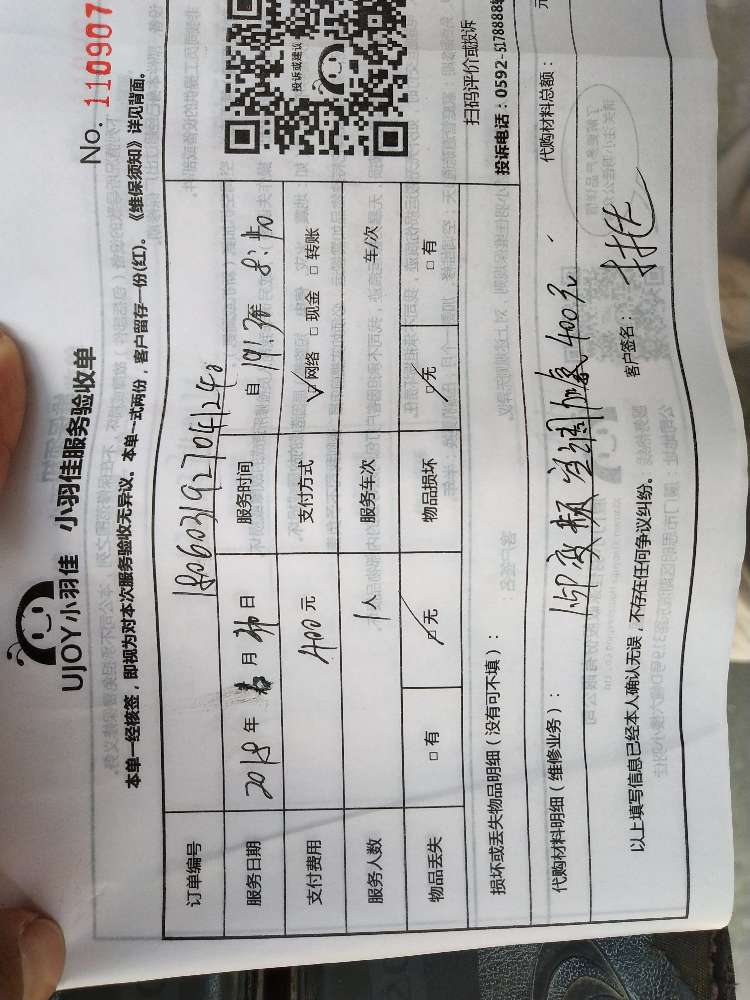 No. 110907
UJOY小羽佳 小羽佳服务验收单
本单一经核签，即视为对本次服务验收无异议。本单一式两份，客户留存一份(红)。《维保须知》详见背面。
订单编号
服务日期 2018 年 月 日 服务时间 自 至 8:40
支付费用 400 元 支付方式 ☑网络 □现金 □转账
服务人数 1人 服务车次 车/次
物品丢失 □有 ☑无 物品损坏 ☑无 □有
投诉或建议
扫码评价或投诉
投诉电话：0592-5178888
损坏或丢失物品明细（没有可不填）：
代购材料明细（维修业务）： 代购材料总额： 元
变频空调加氟400元
以上填写信息已经本人确认无误，不存在任何争议纠纷。 客户签名：